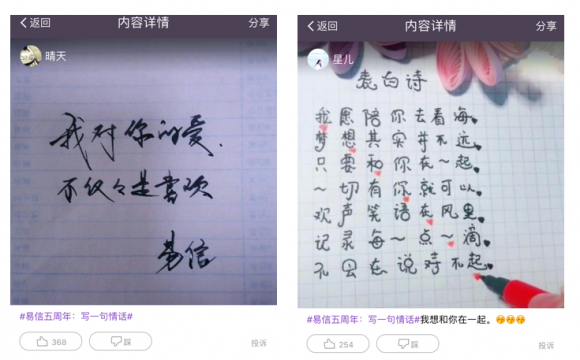 返回 内容详情 分享
晴天
我对你的爱,
不仅仅是喜欢
易信
#易信五周年：写一句情话#
368 踩 投诉
返回 内容详情 分享
星儿
表白诗
我愿陪你去看海
梦想其实并不远
只要和你在一起
一切有你就可以
欢声笑语在风里
记录每一点一滴
不会在说对不起
#易信五周年：写一句情话#我想和你在一起。😚😚😚
254 踩 投诉